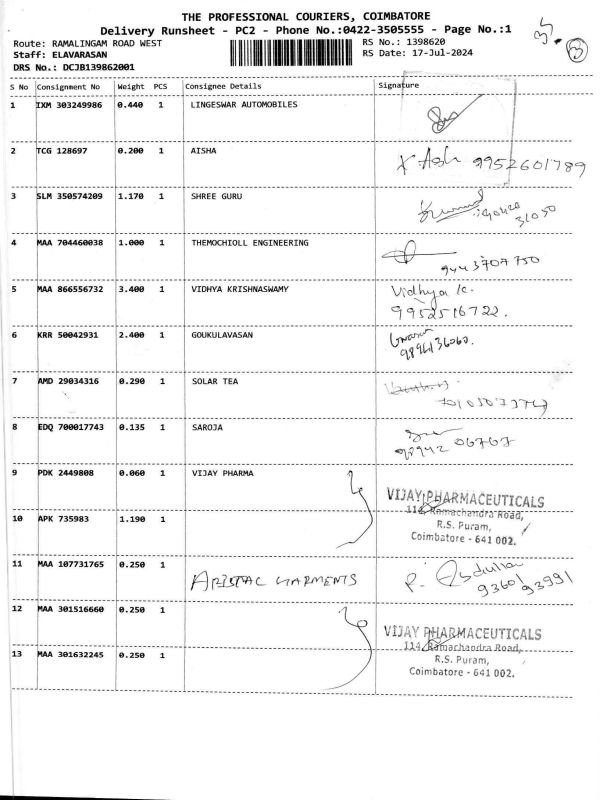 THE PROFESSIONAL COURIERS, COIMBATORE
Delivery Runsheet - PC2 - Phone No.:0422-3505555 - Page No.:1
Route: RAMALINGAM ROAD WEST RS No.: 1398620
Staff: ELAVARASAN RS Date: 17-Jul-2024
DRS No.: DCJB139862001
3
S No Consignment No Weight PCS Consignee Details Signature
1 IXM 303249986 0.440 1 LINGESWAR AUTOMOBILES
2 TCG 128697 0.200 1 AISHA
9952601789
3 SLM 350574209 1.170 1 SHREE GURU
31050
4 MAA 704460038 1.000 1 THEMOCHIOLL ENGINEERING
9443707750
5 MAA 866556732 3.400 1 VIDHYA KRISHNASWAMY Vidhya k.
9952516722.
6 KRR 50042931 2.400 1 GOUKULAVASAN
7 AMD 29034316 0.290 1 SOLAR TEA
8 EDQ 700017743 0.135 1 SAROJA
98942 06767
9 PDK 2449808 0.060 1 VIJAY PHARMA
VIJAY PHARMACEUTICALS
114, Ramachandra Road,
10 APK 735983 1.190 1
R.S. Puram,
Coimbatore - 641 002.
11 MAA 107731765 0.250 1 GARMENTS P. Abdullah
93601 93991
12 MAA 301516660 0.250 1
VIJAY PHARMACEUTICALS
114, Ramachandra Road,
13 MAA 301632245 0.250 1
R.S. Puram,
Coimbatore - 641 002.